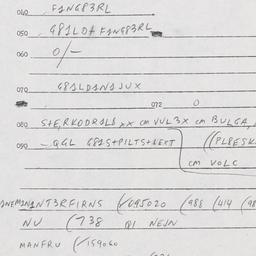 040 FANG83RL
050 G81LOA FANG83RL
060 O/-
070 G81LDANAJUX
072 O
080 S+E,RKODRALD XX CM VUL3X CM BULGA,
090 - QGL G81S+PILTS+NEXT ((PL8ESK
CM VOLC
NT3RFIRNS (√095020 (988 (414 (98
NU (738 QI NEJN
MANFRU (√159060